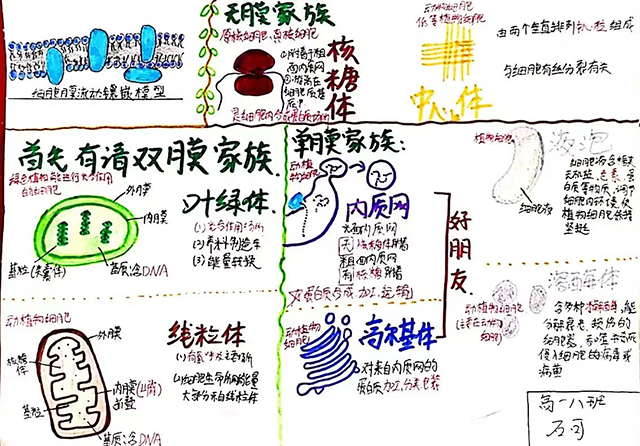 细胞膜流动镶嵌模型
无膜家族
原核细胞、真核细胞
核糖体
①附着于粗
面内质网
②游离在
细胞质基
质中
是细胞内合成蛋白质场所
动植物细胞
低等植物细胞
中心体
由两个垂直排列中心粒组成
与细胞有丝分裂有关
首先有请双膜家族.
绿色植物能进行光合作用
的细胞
外膜
内膜
基粒(类囊体)
基质:含DNA
叶绿体.
(1)光合作用场所
(2)养料制造车
(3)能量转换
动植物细胞
外膜
核糖体
内膜(凹陷)
成嵴
基粒
基质:含DNA
线粒体
(1)有氧呼吸主要场所
(2)细胞生命所需能量
大部分来自线粒体
单膜家族:
动植物细胞
内质网
光面内质网
无核糖体附着
粗面内质网
有核糖附着
对蛋白质合成.加工.运输
好朋友
动植物
细胞
高尔基体
对来自内质网的
蛋白质加工分类包装
植物细胞
液泡
细胞液
细胞液含糖类
无机盐、色素、蛋
白质等物质,调节
细胞内环境,使
植物细胞保持
坚挺
溶酶体
动植物细胞
(主要在动物
细胞)
含多种水解酶,能
分解衰老、损伤的
细胞器,吞噬并杀死
侵入细胞的病毒或
病菌
高一八班
万可